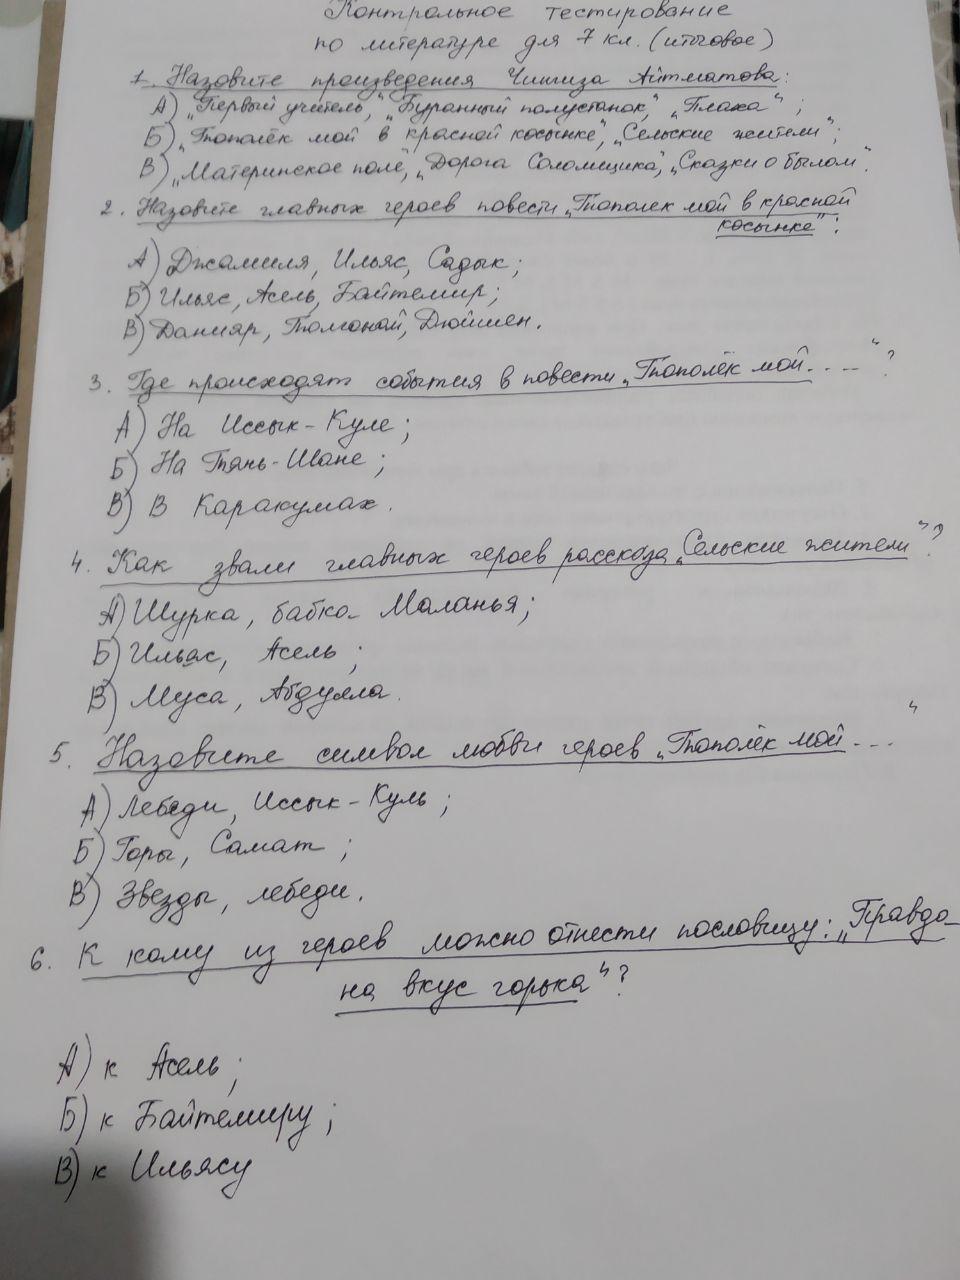 Контрольное тестирование
по литературе для 7 кл. (итоговое)
1. Назовите произведения Чингиза Айтматова:
А) „Первый учитель", „Буранный полустанок", „Плаха";
Б) „Тополёк мой в красной косынке", „Сельские жители";
В) „Материнское поле", „Дорога Соломщика", „Сказки о былом".
2. Назовите главных героев повести „Тополек мой в красной
косынке":
А) Джамиля, Ильяс, Садык;
Б) Ильяс, Асель, Байтемир;
В) Данияр, Толгонай, Дюйшен.
3. Где происходят события в повести „Тополёк мой....."?
А) На Иссык-Куле;
Б) На Тянь-Шане;
В) В Каракумах.
4. Как звали главных героев рассказа „Сельские жители"?
А) Шурка, бабка Маланья;
Б) Ильяс, Асель;
В) Муса, Абдулла.
5. Назовите символ любви героев „Тополёк мой...."
А) Лебеди, Иссык-Куль;
Б) Горы, Самат;
В) Звезды, лебеди.
6. К кому из героев можно отнести пословицу: „Правда
на вкус горька"?
А) к Асель;
Б) к Байтемиру;
В) к Ильясу